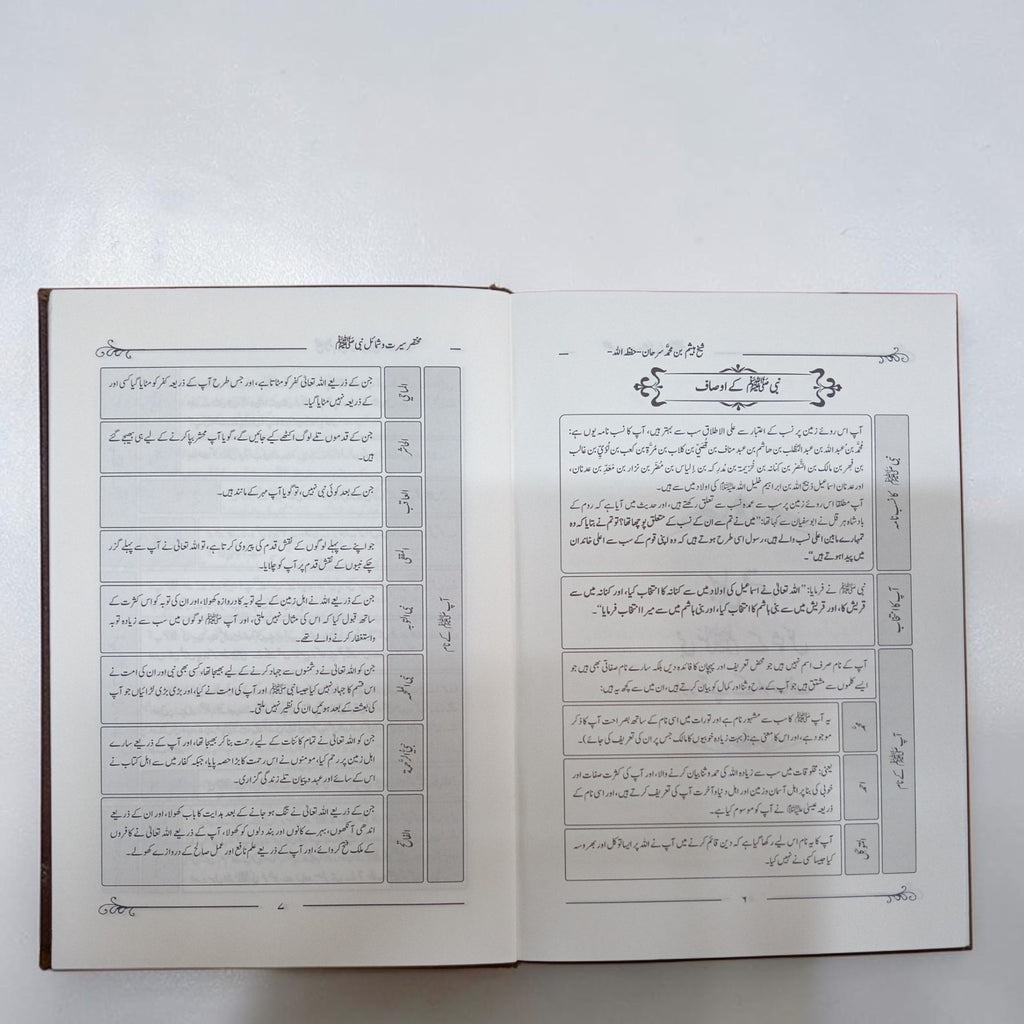 شیخ ہیثم بن محمد سرحان -حفظہ اللہ-
نبی ﷺ کے اوصاف
نبی ﷺ کا نسب نامہ
آپ اس روئے زمین پر نسب کے اعتبار سے علی الاطلاق سب سے بہتر ہیں، آپ کا نسب نامہ یوں ہے:
محمد بن عبد اللہ بن عبد المطلب بن ہاشم بن عبد مناف بن قصی بن کلاب بن مرۃ بن کعب بن لؤی بن غالب
بن فہر بن مالک بن النضر بن کنانہ بن خزیمۃ بن مدرکہ بن إلیاس بن مضر بن نزار بن معد بن عدنان،
اور عدنان اسماعیل ذبیح اللہ بن ابراہیم خلیل اللہ کی اولاد میں سے ہیں۔
آپ مطلقا اس روئے زمین پر سب سے عمدہ نسب سے تعلق رکھتے ہیں، اور حدیث میں آیا ہے کہ روم کے
بادشاہ ہرقل نے ابو سفیان سے کہا تھا: "میں نے تم سے ان کے نسب کے متعلق پوچھا تھا؟ تو تم نے بتایا کہ وہ
تمہارے مابین اعلی نسب والے ہیں، رسول اسی طرح ہوتے ہیں کہ وہ اپنی قوم کے سب سے اعلی خاندان
میں پیدا ہوتے ہیں"۔
آپ کا انتخاب
نبی ﷺ نے فرمایا: "اللہ تعالی نے اسماعیل کی اولاد میں سے کنانہ کا انتخاب کیا، اور کنانہ میں سے
قریش کا، اور قریش میں سے بنی ہاشم کا انتخاب کیا، اور بنی ہاشم میں سے میرا انتخاب فرمایا"۔
آپ ﷺ کے نام
آپ کے نام صرف اسم نہیں ہیں جو محض تعریف اور پہچان کا فائدہ دیں بلکہ سارے نام صفاتی بھی ہیں جو
ایسے کلموں سے مشتق ہیں جو آپ کے مدح و ثنا اور کمال کو بیان کرتے ہیں، ان میں سے کچھ یہ ہیں:
محمد
یہ آپ ﷺ کا سب سے مشہور نام ہے اور تورات میں اسی نام کے ساتھ بصراحت آپ کا ذکر
موجود ہے، اور اس کا معنی ہے: (بہت زیادہ خوبیوں کا مالک جس پر ان کی تعریف کی جائے)۔
احمد
یعنی: مخلوقات میں سب سے زیادہ اللہ کی حمد و ثنا بیان کرنے والا، اور آپ کی کثرت صفات اور
خوبی کی بنا پر اہل آسمان و زمین اور اہل دنیا و آخرت آپ کی تعریف کرتے ہیں، اور اسی نام کے
ذریعہ عیسیٰ نے آپ کو موسوم کیا ہے۔
المتوکل
آپ کا یہ نام اس لیے رکھا گیا ہے کہ دین قائم کرنے میں آپ نے اللہ پر ایسا توکل اور بھروسہ
کیا جیسا کسی نے نہیں کیا۔
۶
مختصر سیرت و شمائل نبی ﷺ
آپ ﷺ کے نام
الماحی
جن کے ذریعے اللہ تعالی کفر کو مٹاتا ہے، اور جس طرح آپ کے ذریعہ کفر کو مٹایا گیا کسی اور
کے ذریعہ نہیں مٹایا گیا۔
الحاشر
جن کے قدموں تلے لوگ اکٹھے کیے جائیں گے، گویا آپ محشر بپا کرنے کے لیے ہی بھیجے گئے
ہیں۔
العاقب
جن کے بعد کوئی نبی نہیں، تو گویا آپ مہر کے مانند ہیں۔
المقفی
جو اپنے سے پہلے لوگوں کے نقش قدم کی پیروی کرتا ہے، تو اللہ تعالی نے آپ سے پہلے گزر
چکے نبیوں کے نقش قدم پر آپ کو چلایا۔
نبی التوبہ
جن کے ذریعے اللہ نے اہل زمین کے لیے توبہ کا دروازہ کھولا، اور ان کی توبہ کو اس کثرت کے
ساتھ قبول کیا کہ اس کی مثال نہیں ملتی، اور آپ ﷺ لوگوں میں سب سے زیادہ توبہ
و استغفار کرنے والے تھے۔
نبی الملحمہ
جن کو اللہ تعالی نے دشمنوں سے جہاد کرنے کے لیے بھیجا تھا، کسی بھی نبی اور ان کی امت نے
اس قسم کا جہاد نہیں کیا جیسا نبی ﷺ اور آپ کی امت نے کیا، اور بڑی بڑی لڑائیاں جو آپ
کی بعثت کے بعد ہوئیں ان کی نظیر نہیں ملتی۔
نبی الرحمۃ
جن کو اللہ تعالی نے تمام کائنات کے لیے رحمت بنا کر بھیجا تھا، اور آپ کے ذریعے سارے
اہل زمین پر رحم کیا، مومنوں نے اس رحمت کا بڑا حصہ پایا، جبکہ کفار میں سے اہل کتاب نے
اس کے سائے اور عہد و پیمان تلے زندگی گزاری۔
الفاتح
جن کے ذریعے اللہ تعالی نے تنگ ہو جانے کے بعد ہدایت کا باب کھولا، اور ان کے ذریعے
اندھی آنکھوں، بہرے کانوں اور بند دلوں کو کھولا، آپ کے ذریعے اللہ تعالی نے کافروں
کے ملک فتح کروائے، اور آپ کے ذریعے علم نافع اور عمل صالح کے دروازے کھولے۔
۷